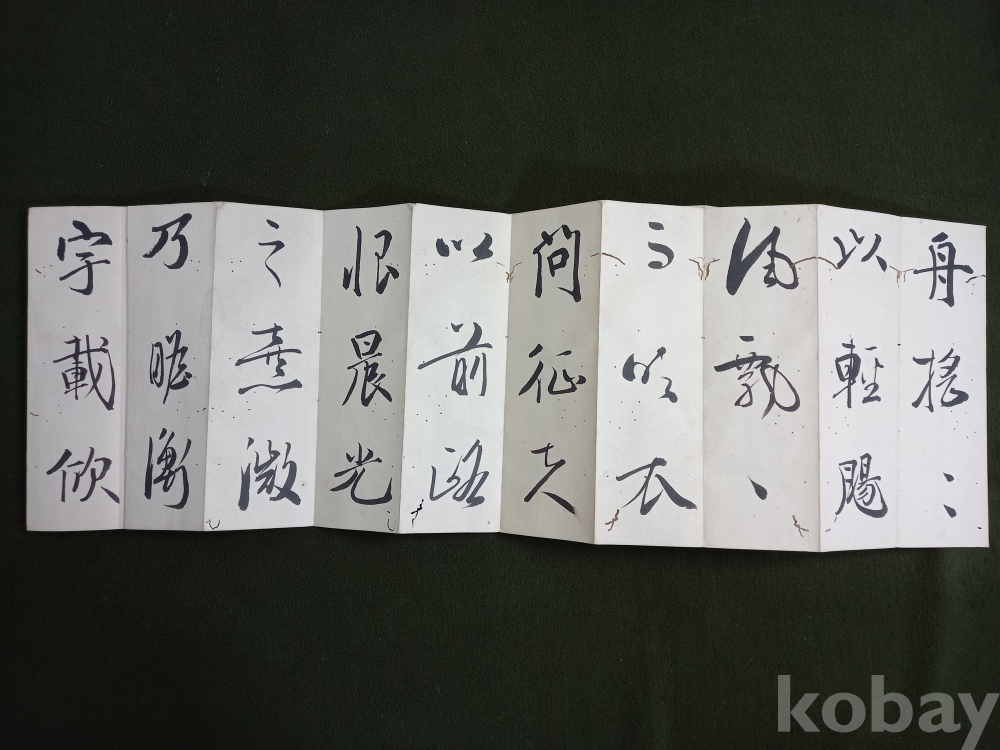 舟搖〻
以輕颺
風飄〻
而吹衣
問征夫
以前路
恨晨光
之熹微
乃瞻衡
宇載欣
kobay